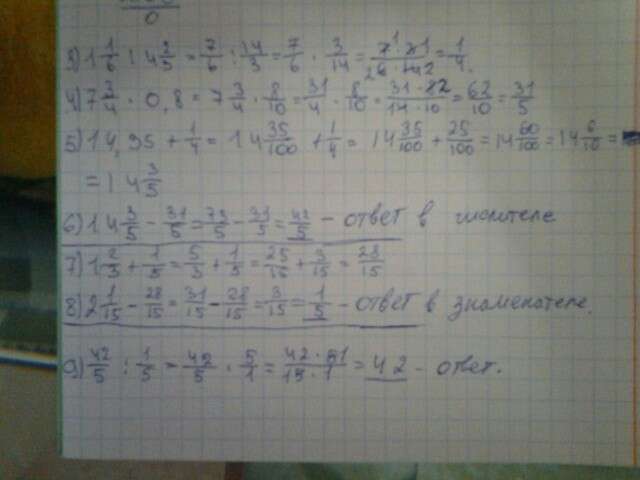 0
3) 1 1/6 : 4 2/3 = 7/6 : 14/3 = 7/6 · 3/14 = 7 1 · 3 1 / 2 6 · 14 2 = 1/4.
4) 7 3/4 · 0,8 = 7 3/4 · 8/10 = 31/4 · 8/10 = 31 · 8 2 / 1 4 · 10 = 62/10 = 31/5
5) 14,35 + 1/4 = 14 35/100 + 1/4 = 14 35/100 + 25/100 = 14 60/100 = 14 6/10 =
= 14 3/5
6) 14 3/5 - 31/5 = 73/5 - 31/5 = 42/5 - ответ в числителе
7) 1 2/3 + 1/5 = 5/3 + 1/5 = 25/15 + 3/15 = 28/15
8) 2 1/15 - 28/15 = 31/15 - 28/15 = 3/15 = 1/5 - ответ в знаменателе.
9) 42/5 : 1/5 = 42/5 · 5/1 = 42 · 5 1 / 1 5 · 1 = 42 - ответ.